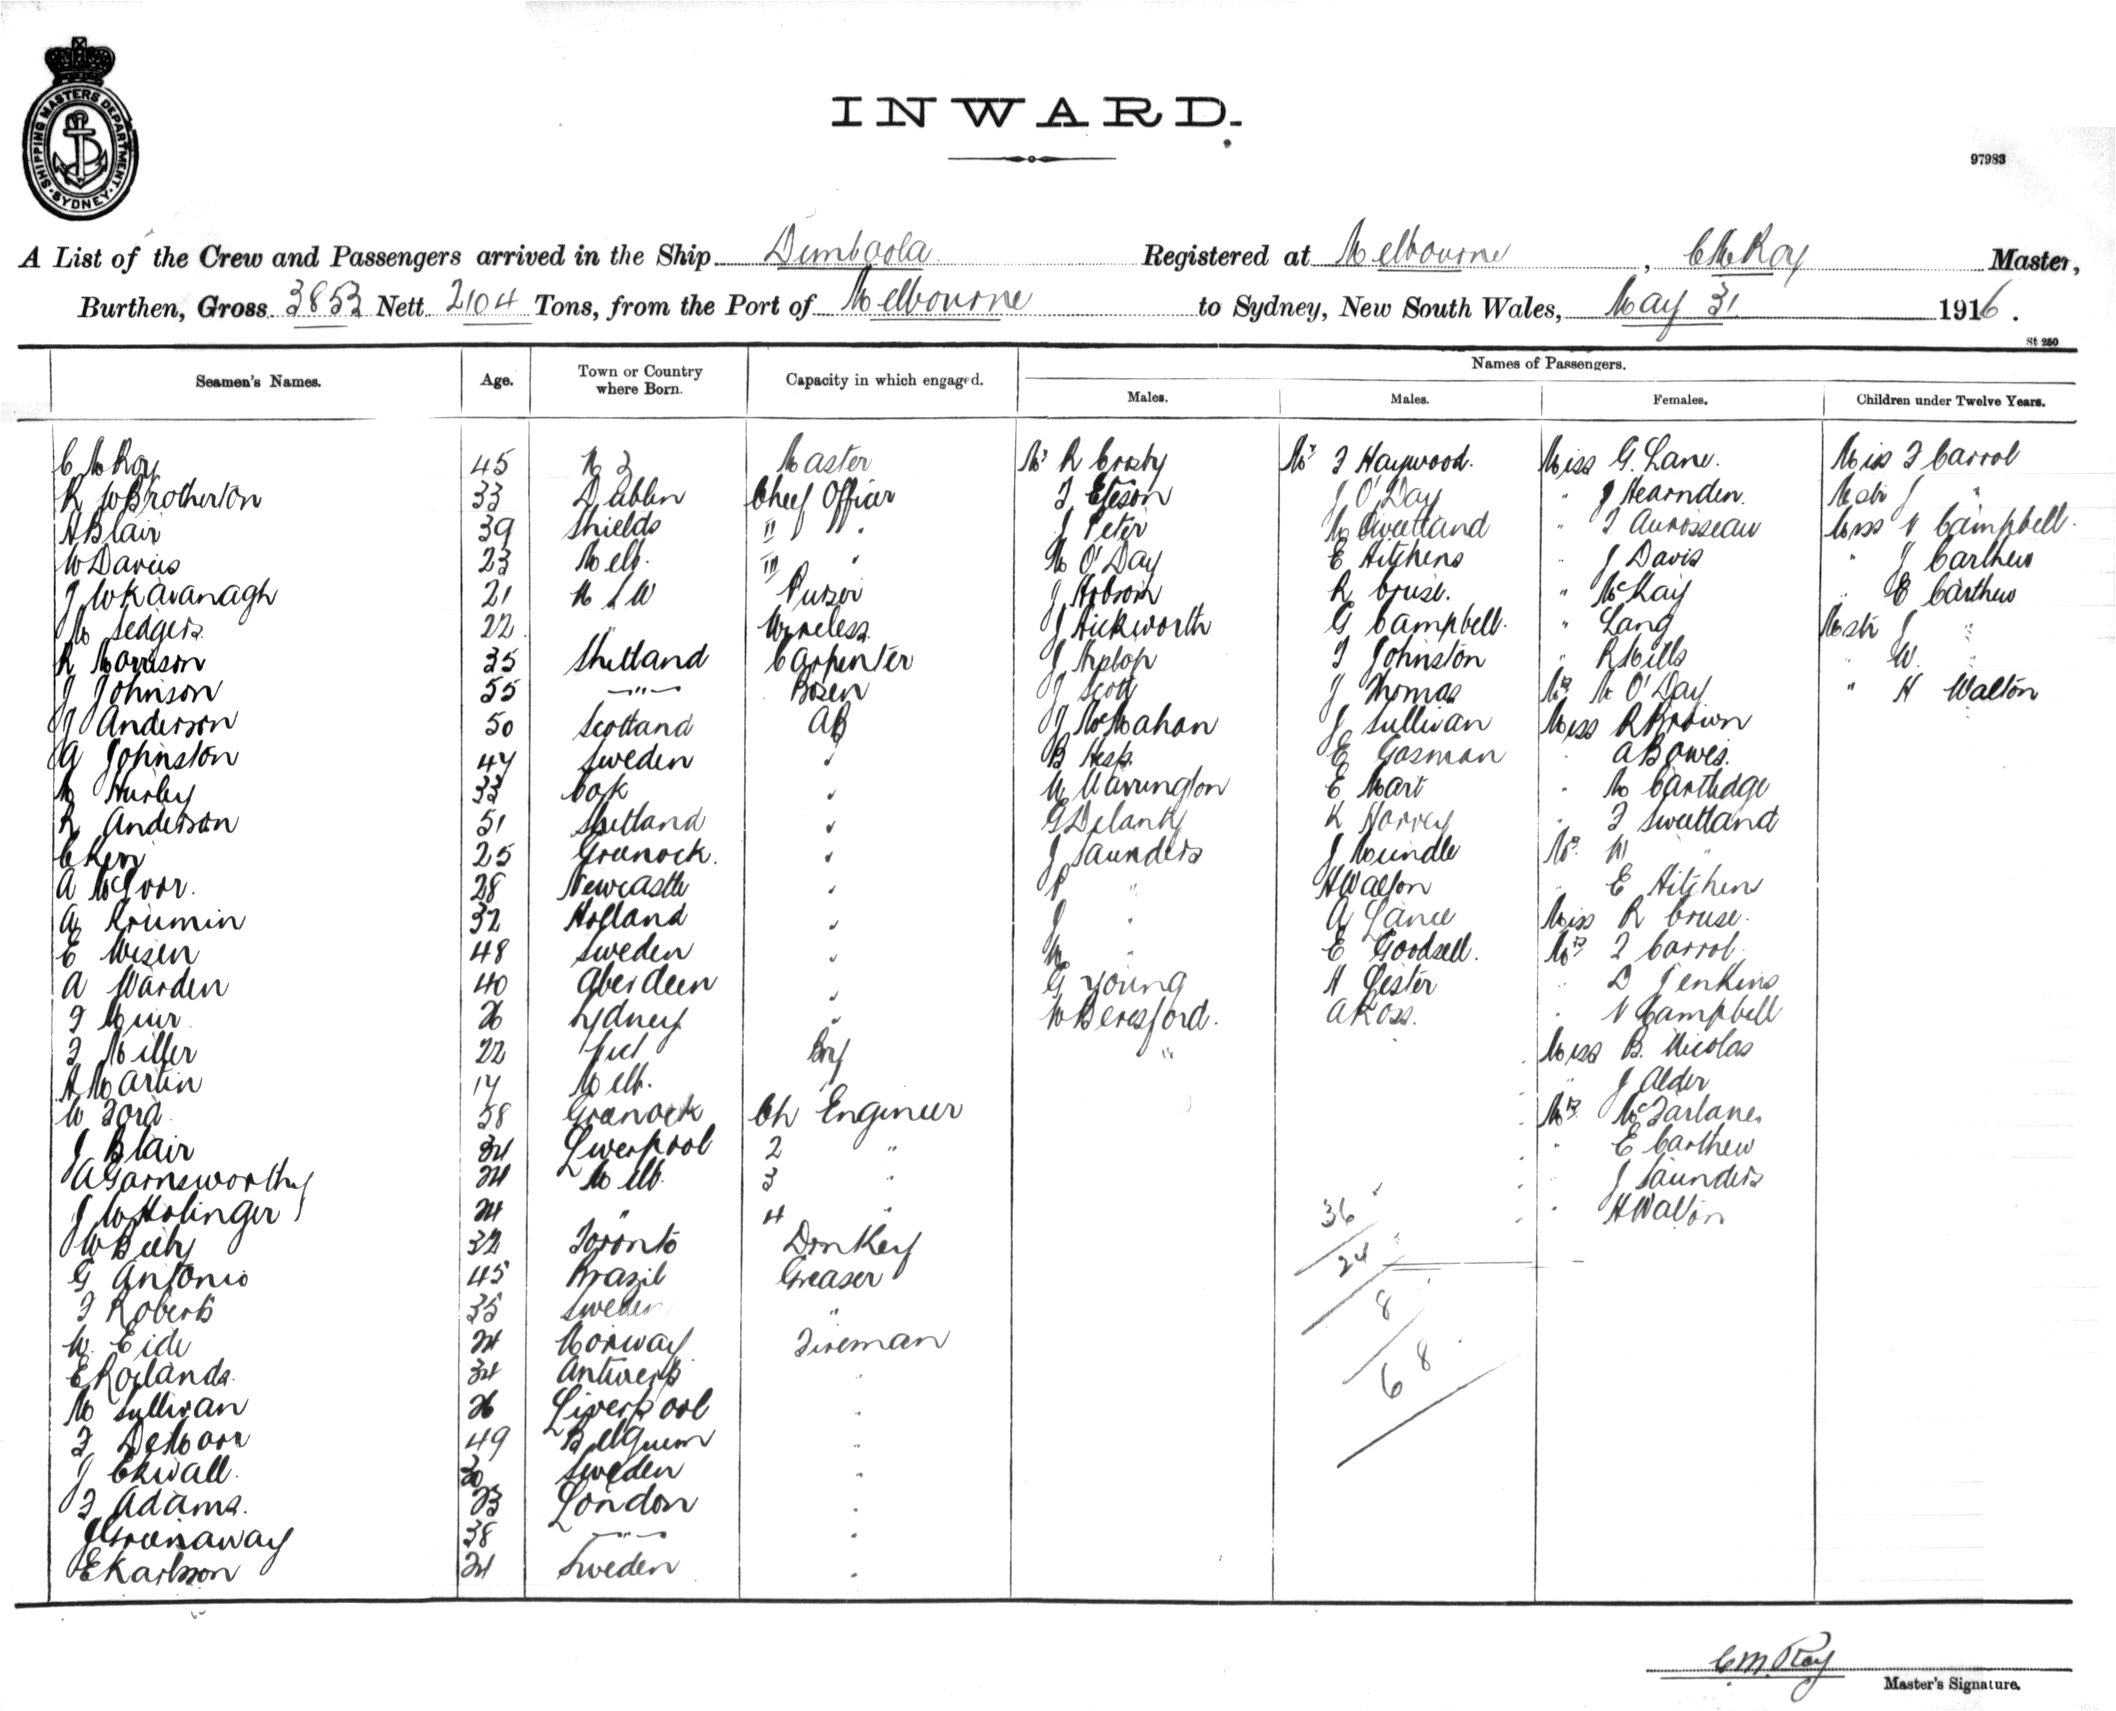 SHIPPING MASTERS DEPARTMENT
SYDNEY
INWARD.
97983
A List of the Crew and Passengers arrived in the Ship Dimboola Registered at Melbourne, C M Roy Master,
Burthen, Gross 3853 Nett 2104 Tons, from the Port of Melbourne to Sydney, New South Wales, May 31 1916.
St 250
Seamen's Names. Age. Town or Country where Born. Capacity in which engaged. Names of Passengers.
Males. Males. Females. Children under Twelve Years.
C M Roy 45 N Z Master Mr R Crosby Mr F Haywood. Miss G. Lane. Miss F Carrol
R W Brotherton 33 Dublin Chief Officer F Eteson J O'Day " J Hearnden. Mstr J "
A Blair 39 Shields II " J Peter M Sweetland " F Aurosseau Miss N Campbell.
W Davies 23 Melb. III " M O'Day E Aitchens " J Davis " J Carthew
J W Kavanagh 21 N S W Purser J Hobson R Cruse. " McKay " E Carthew
M Sedgers 22 " Wireless J Hickworth G Campbell. " Lang Mstr J "
R Morrison 35 Shetland Carpenter J F Johnston " R Mills " W. "
J Johnson 55 " Bosen J Scott J Thomas Mrs M O'Day " H Walton
J Anderson 50 Scotland AB J McMahon J Sullivan Miss R Brown
A Johnston 47 Sweden " B Hesp. E Gosman " A Bowes.
M Hurley 33 Cork " W Warrington E Mart " M Cartledge
R Anderson 51 Shetland " G Delanty K Harvey " F Sweetland
C Kerr 25 Greenock. " J Saunders J Mundle Mrs W "
A McIvor. 28 Newcastle " P " H Walton " E Aitchen
A Krumin 32 Holland " J " A Lance Miss R Cruse.
E Wisen 48 Sweden " M " E Goodsell. Mrs F Carrol
A Warden 40 Aberdeen " G Young H Lester " D Jenkins
F Muir 26 Sydney " W Beresford. A Ross. " N Campbell
F Miller 22 Boy " Miss B. Nicolas
A Martin 17 Melb. " J Alder
W Ford 58 Greenock Ch Engineer Mrs McFarlane
J Blair 34 Liverpool 2 " " E Carthew
A Garnsworthy 24 Melb. 3 " " J Saunders
J W Holinger 24 " 4 " 36 " H Walton
W Bieby 32 Toronto Donkey 24
G Antonio 45 Brazil Greaser
F Roberts 35 Sweden " 8
W. Eide 24 Norway Fireman
E Roylands. 34 Antwerp " 68
M Sullivan 26 Liverpool "
F DeMoor 49 Belguem "
J Ekwall. 20 Sweden "
F Adams. 23 London "
J Greenaway 38 " "
E Karlson 24 Sweden "
C. M. Roy
Master's Signature.